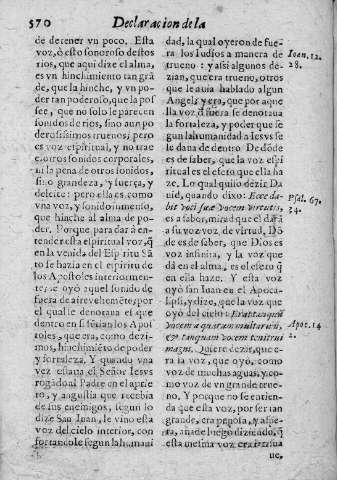 570 Declaracion de la
de detener vn poco. Esta
voz, o este sonoroso destos
rios, que aqui dize el alma,
es vn hinchimiento tan grã
de, que la hinche, y vn po-
der tan poderoso, que la pos
see, que no solo le parecen
sonidos de rios, sino aun po
derosissimos truenos; pero
es voz espiritual, y no trae
essotros sonidos corporales,
ni la pena de otros sonidos,
sino grandeza, y fuerça, y
deleite: pero ella es como
vna voz, y sonido inmenso,
que hinche al alma de po-
der. Porque para dar à en-
tender esta espiritual voz, q̃
en la venida del Espiritu Sã
to se hazia en el espiritu de
los Apostoles interiormen-
te, se oyò aquel sonido de
fuera de aire vehemẽte, por
el qual se denotaua el que
dentro en si sentian los Apos
toles, que era, como dezi-
mos, hinchimiẽto de poder
y fortaleza. Y quando vna
vez estaua el Señor Iesvs
rogãdo al Padre en el aprie
to, y angustia que recebia
de sus enemigos, segun lo
dize San Iuan, le vino esta
voz del cielo interior, con
fortandole segun la humani
dad, la qual oyeron de fue-
ra los Iudios a manera de
trueno: y assi algunos de-
zian, que era trueno, otros
que le auia hablado algun
Angel: y era, que por aque
lla voz, q̃ fuera se denotaua
la fortaleza, y poder que se
gun la humanidad a Iesvs se
le daua de dentro. De dõde
es de saber, que la voz espi
ritual es el efeto que ella ha
ze. Lo qual quiso dezir Da
uid, quando dixo: Ecce da-
bit voci suæ vocem virtutis,
es a saber, mirad que el darà
a su voz voz, de virtud. Dõ
de es de saber, que Dios es
voz infinita, y la voz que
dà en el alma, es el efeto q̃
en ella haze. Y esta voz
oyò san Iuan en el Apoca-
lipsi, y dize, que la voz que
oyò del cielo: Erat tanquã
vocem aquarum multarum,
& tanquam vocem tonitrui
magni. Quiere dezir, que e-
ra la voz, que oyò, como
voz de muchas aguas, y co-
mo voz de vn grande true-
no. Y porque no se entien-
da que esta voz, por ser tan
grande, era penosa, y aspe-
ra, añade luego diziendo, q̃
esta mesma voz era tan sua
ue,
Ioan. 12.
28.
Psal. 67.
34.
Apoc. 14
2.